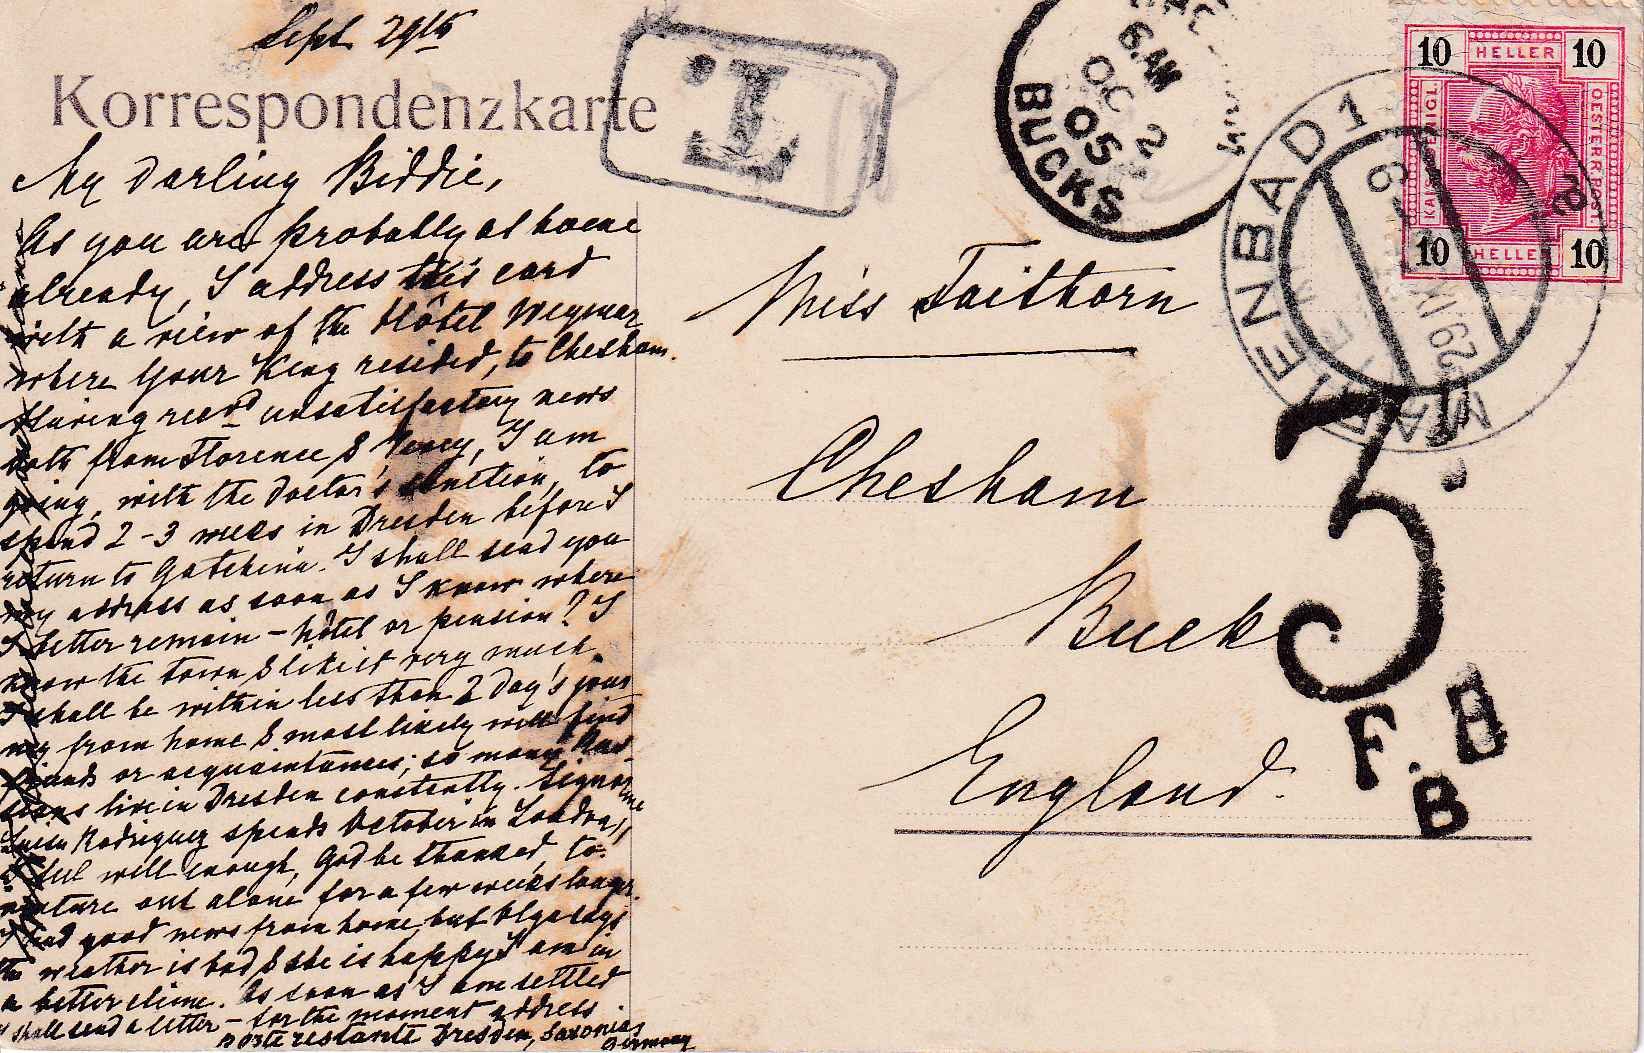 Sept 29th
Korrespondenzkarte
T.
6 AM
OC 2
05
BUCKS
10 HELLER 10
KAIS. KOENIGL. OESTERR. POST
10 HELLER 10
MARIENBAD 1
29.IX
My darling Biddie,
As you are probably at home
already, I address this card
with a view of the Hôtel Weymar
where Your King resided, to Chesham.
Having recvd unsatisfactory news
both from Florence & I am
going, with the doctor's to
spend 2-3 weeks in Dresden before I
return to Gatchina. I shall send you
my address as soon as I know where
I better remain - hôtel or pension? I
know the town & like it very much
I shall be within less than 2 day's jour
ney from home & most likely will find
friends or acquaintances; so many Rus-
sians live in Dresden constantly. Signorine
Luisa Rodriguez spends October in London,
I feel well enough, God be thanked, to
venture out alone for a few weeks longer.
I had good news from home, but Olga says
the weather is bad & she is happy I am in
a better clime. As soon as I am settled
I shall send a letter - for the moment address
poste restante Dresden, Saxonia,
Germany
Miss Faithorn
Chesham
Bucks
England.
3
F.B
H